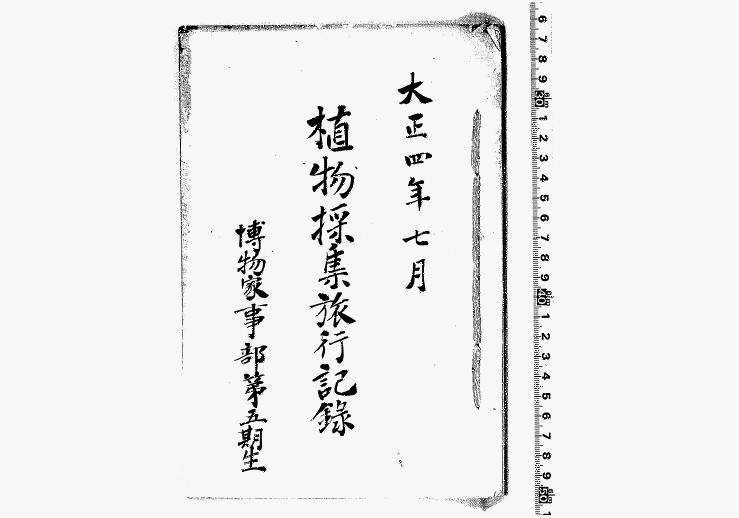 大正四年七月
植物採集旅行記録
博物家事部第五期生
6 7 8 9 30 1 2 3 4 5 6 7 8 9 40 1 2 3 4 5 6 7 8 9 50 1